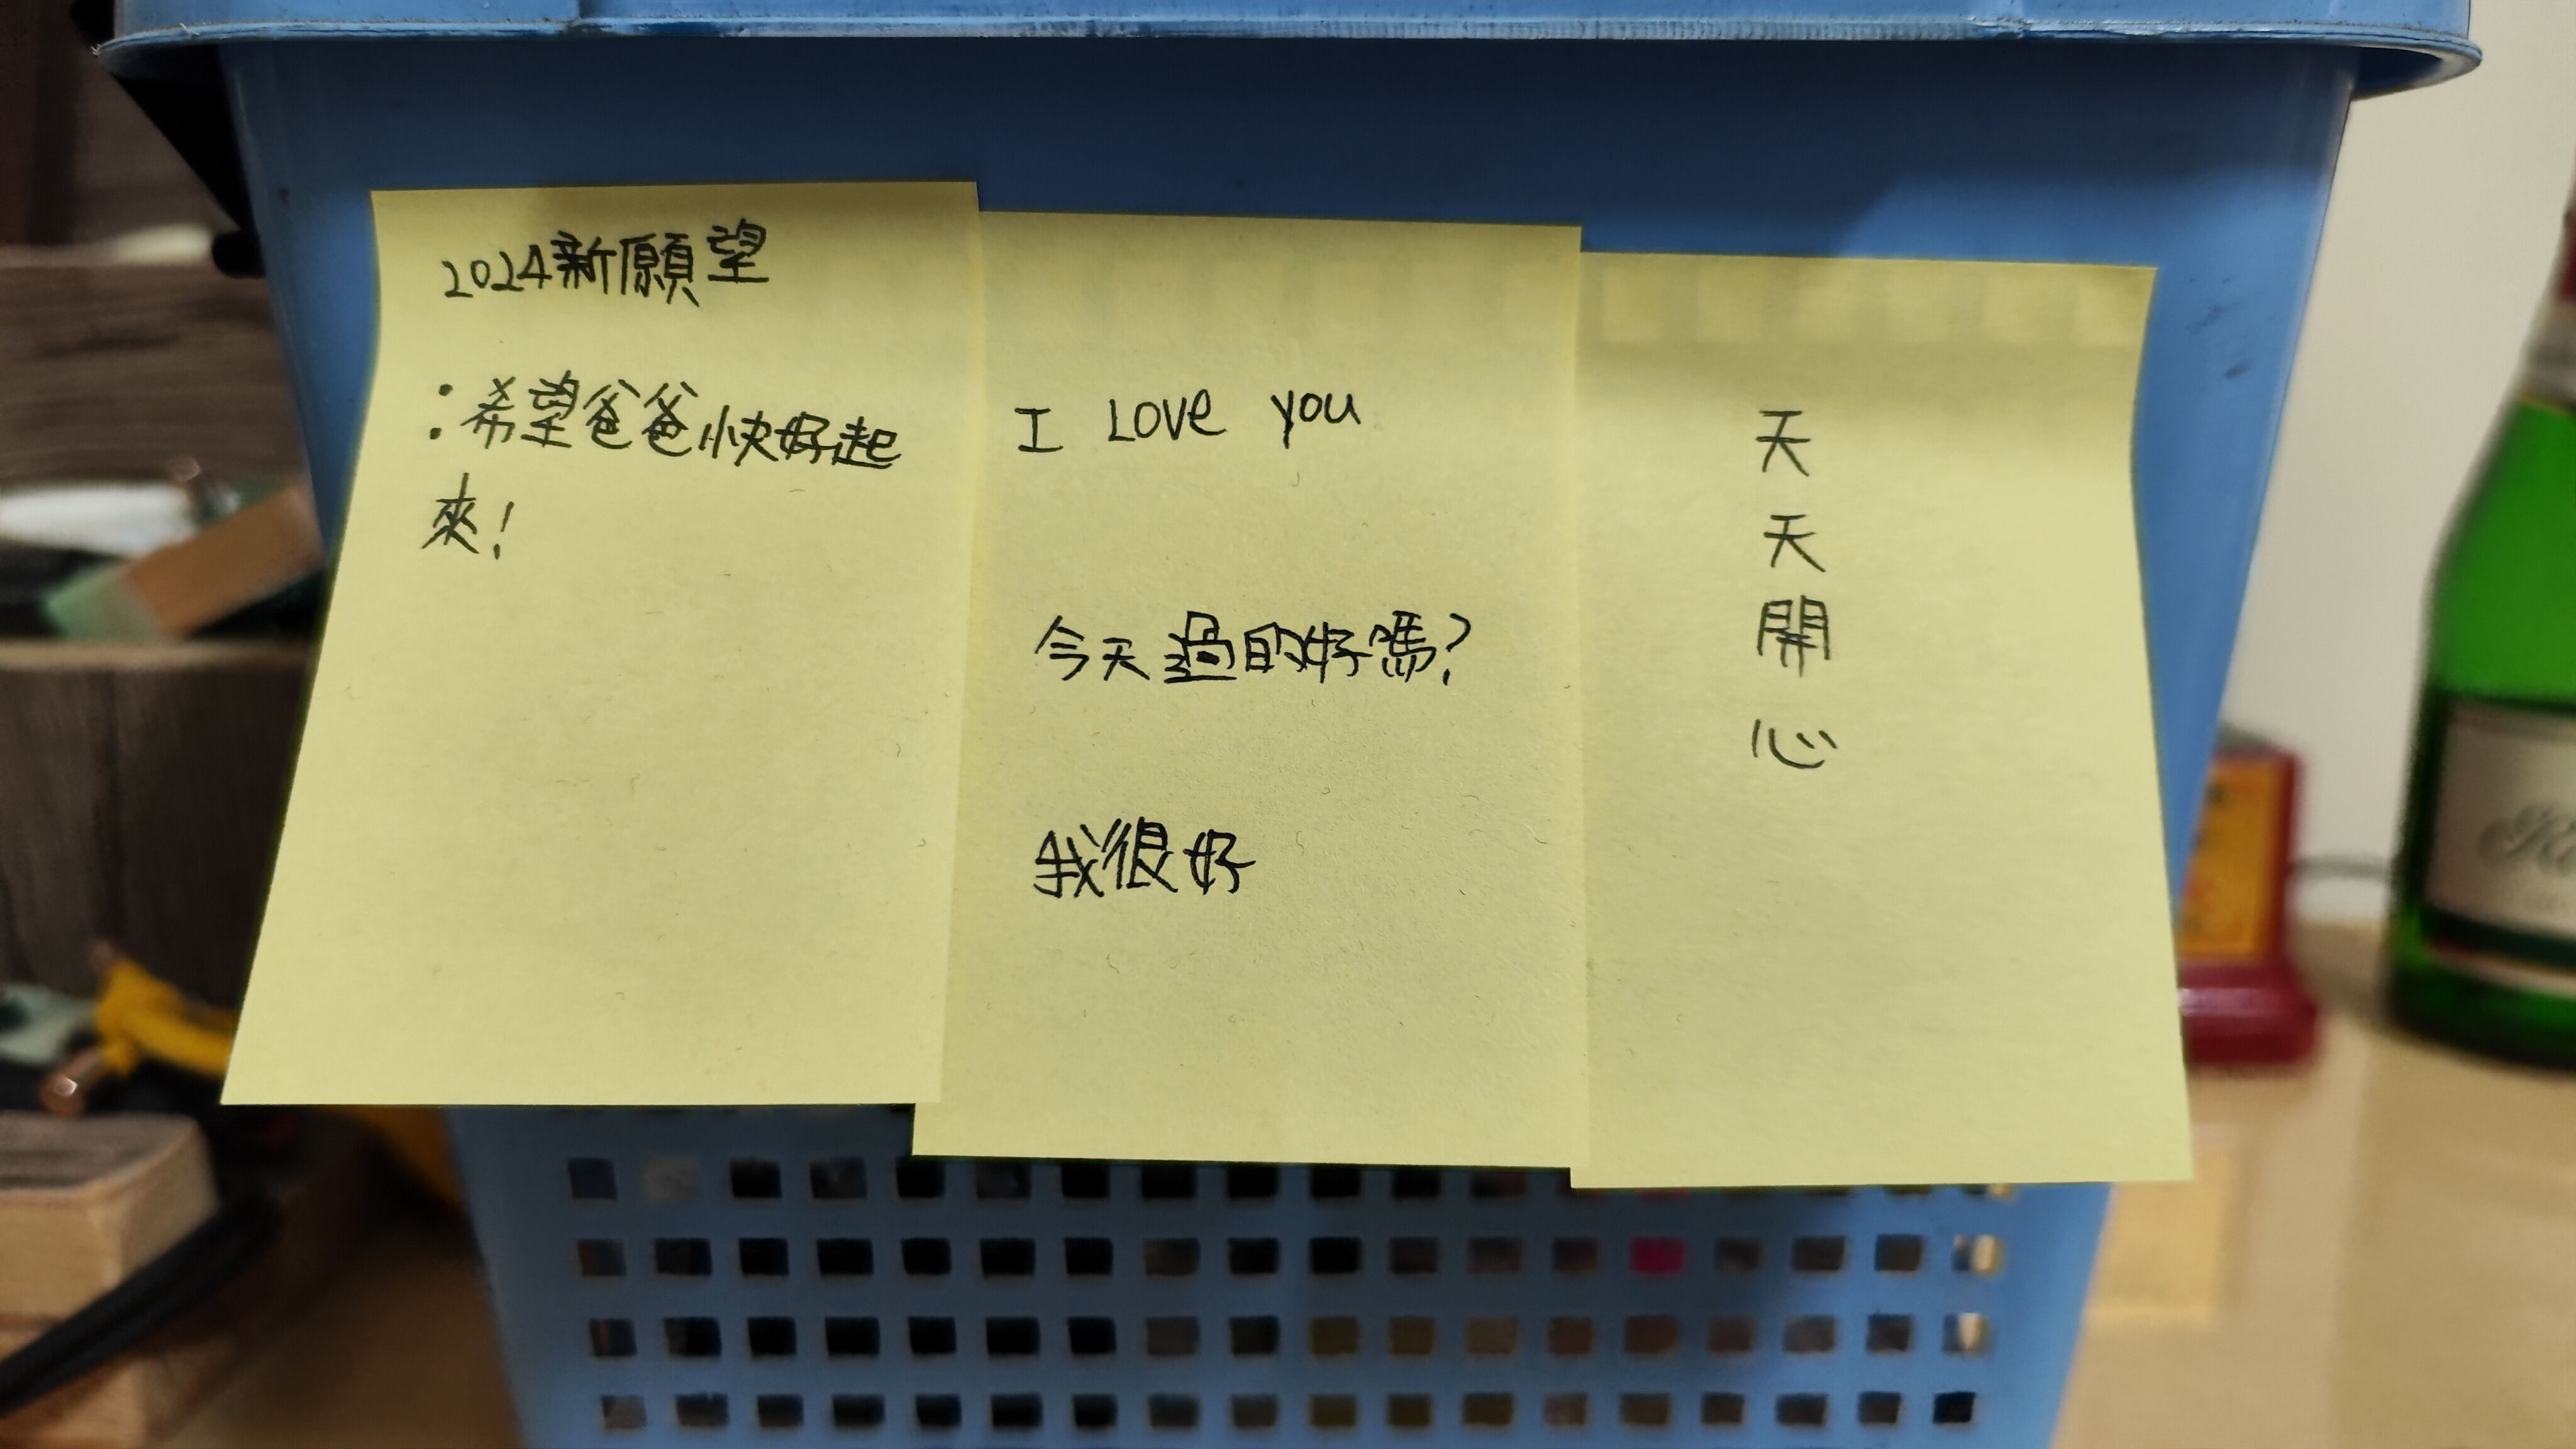 2024新願望
：希望爸爸快好起
來！
I Love you
今天過的好嗎？
我很好
天
天
開
心